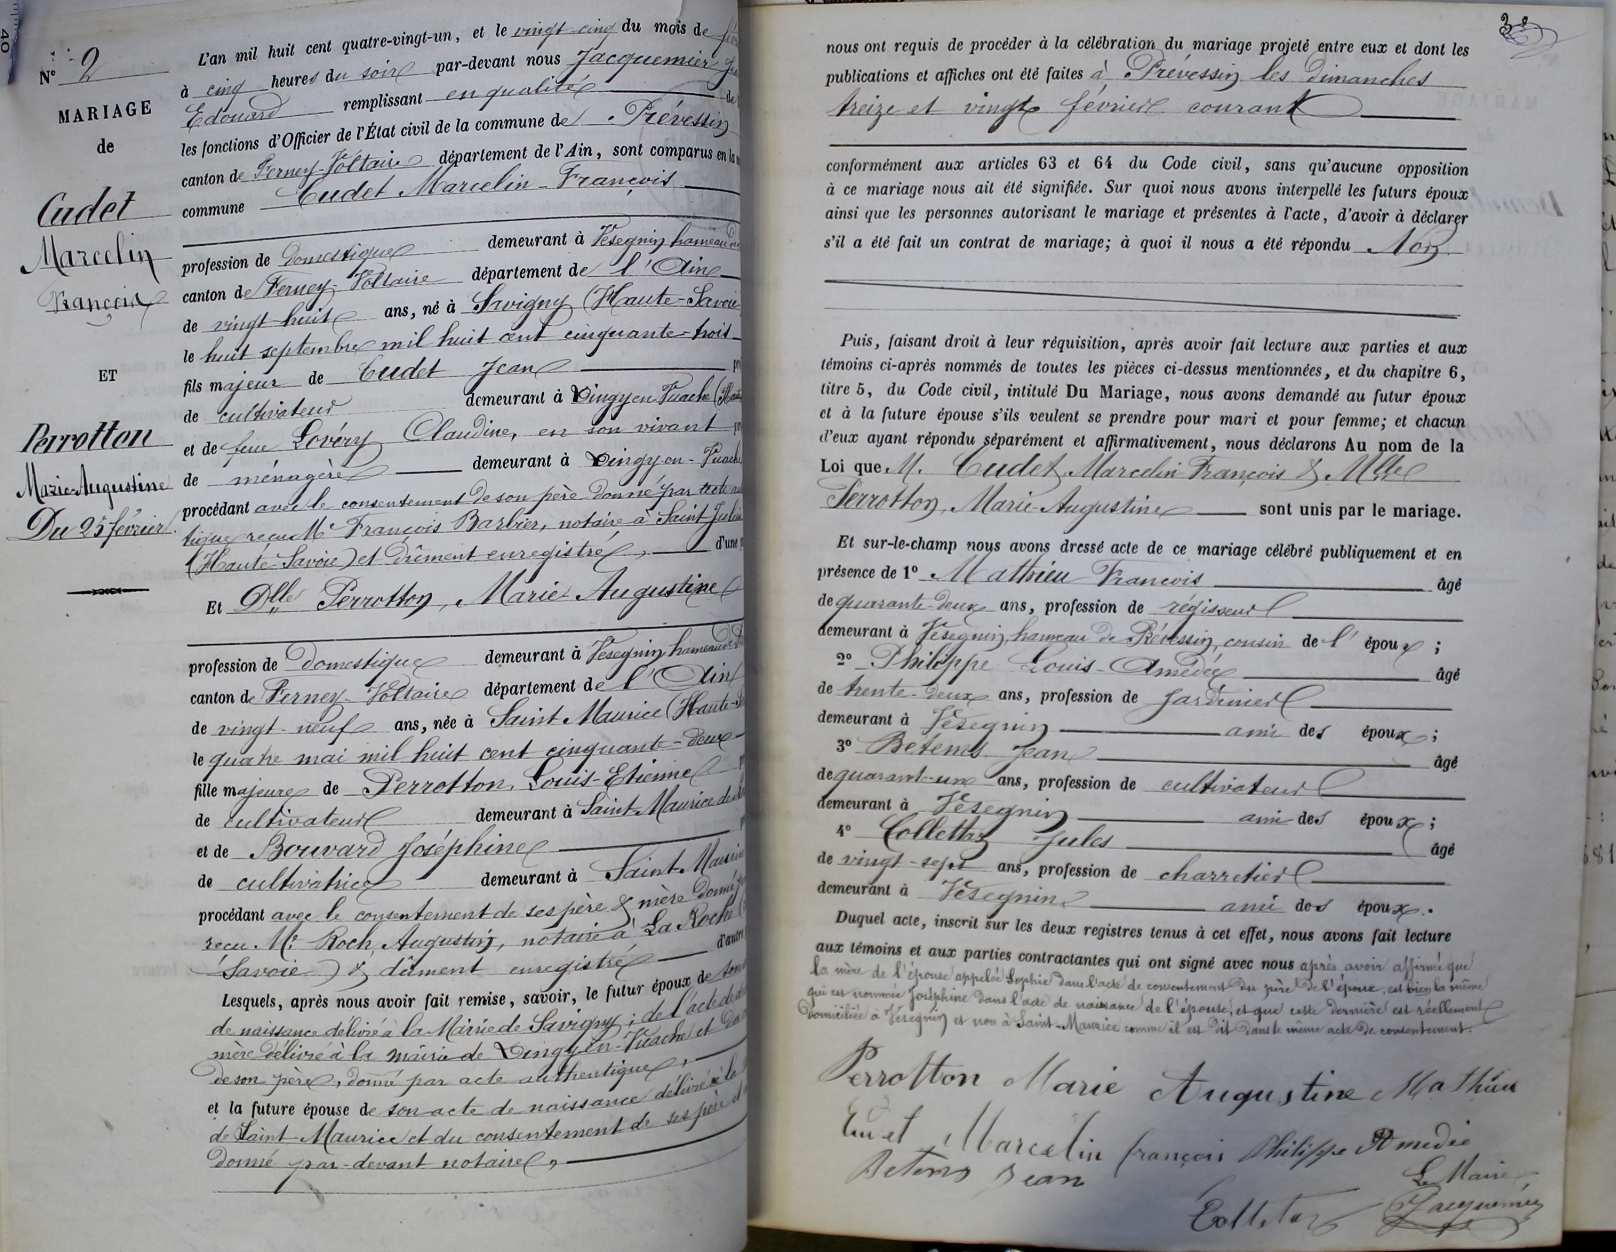 40
N° 2
MARIAGE
de
Cudet
Marcelin
François
ET
Perrotton
Marie-Augustine
Du 25 février.
L'an mil huit cent quatre-vingt-un, et le vingt-cinq du mois de
à cinq heures du soir par-devant nous Jacquemier
Edouard remplissant en qualité de
les fonctions d'Officier de l'État civil de la commune de Prévessin
canton de Ferney-Voltaire département de l'Ain, sont comparus en la
commune Cudet Marcelin-François
profession de domestique demeurant à Vésegnin hameau
canton de Ferney-Voltaire département de l'Ain
de vingt-huit ans, né à Savigny (Haute-Savoie
le huit septembre mil huit cent cinquante-trois
fils majeur de Cudet Jean
de cultivateur demeurant à Dingy en Vuache
et de feue Lovéry Claudine, en son vivant
de ménagère demeurant à Dingy en Vuache
procédant avec le consentement de son père donné par acte
tique reçu Me François Barbier, notaire à Saint Julien
(Haute-Savoie) et dûment enregistré, d'une
Et Dlle Perrotton, Marie Augustine
profession de Domestique demeurant à Vésegnin hameau
canton de Ferney-Voltaire département de l'Ain
de vingt-neuf ans, née à Saint Maurice (Haute
le quatre mai mil huit cent cinquante-deux
fille majeure de Perrotton, Louis-Etienne
de cultivateur demeurant à Saint-Maurice
et de Bouvard Joséphine
de cultivatrice demeurant à Saint-Maurice
procédant avec le consentement de ses père & mère donné
reçu Me Roch Augustin, notaire à La Roche
Savoie) & dûment enregistré d'autre
Lesquels, après nous avoir fait remise, savoir, le futur époux de son
de naissance délivré à la Mairie de Savigny; de l'acte de
mère délivré à la mairie de Dingy en Vuache et
de son père, donné par acte authentique,
et la future épouse de son acte de naissance délivré à la
de Saint-Maurice et du consentement de ses père et
donné par-devant notaire,
3
nous ont requis de procéder à la célébration du mariage projeté entre eux et dont les
publications et affiches ont été faites à Prévessin les dimanches
treize et vingt février courant
conformément aux articles 63 et 64 du Code civil, sans qu'aucune opposition
à ce mariage nous ait été signifiée. Sur quoi nous avons interpellé les futurs époux
ainsi que les personnes autorisant le mariage et présentes à l'acte, d'avoir à déclarer
s'il a été fait un contrat de mariage; à quoi il nous a été répondu Non
Puis, faisant droit à leur réquisition, après avoir fait lecture aux parties et aux
témoins ci-après nommés de toutes les pièces ci-dessus mentionnées, et du chapitre 6,
titre 5, du Code civil, intitulé Du Mariage, nous avons demandé au futur époux
et à la future épouse s'ils veulent se prendre pour mari et pour femme; et chacun
d'eux ayant répondu séparément et affirmativement, nous déclarons Au nom de la
Loi que M. Cudet Marcelin François & Mlle
Perrotton, Marie-Augustine sont unis par le mariage.
Et sur-le-champ nous avons dressé acte de ce mariage célébré publiquement et en
présence de 1° Mathieu François âgé
de quarante-deux ans, profession de régisseur
demeurant à Vésegnin, hameau de Prévessin, cousin de l'époux;
2° Philippe Louis-Amédée âgé
de trente-deux ans, profession de jardinier
demeurant à Vésegnin ami des époux;
3° Betems Jean âgé
de quarant-un ans, profession de cultivateur
demeurant à Vésegnin ami des époux;
4° Collettaz Jules âgé
de vingt-sept ans, profession de charretier
demeurant à Vésegnin ami des époux.
Duquel acte, inscrit sur les deux registres tenus à cet effet, nous avons fait lecture
aux témoins et aux parties contractantes qui ont signé avec nous après avoir affirmé que
la mère de l'épouse appelée Sophie dans l'acte de consentement du père de l'épouse, est bien la même
qui est nommée Joséphine dans l'acte de naissance de l'épouse, et que cette dernière est réellement
domiciliée à Vésegnin et non à Saint-Maurice comme il est dit dans le même acte de consentement.
Perrotton Marie Augustine Mathieu
Cudet Marcelin françois Philippe Amédée
Betems Jean
Le Maire
Colletaz Jacquemier